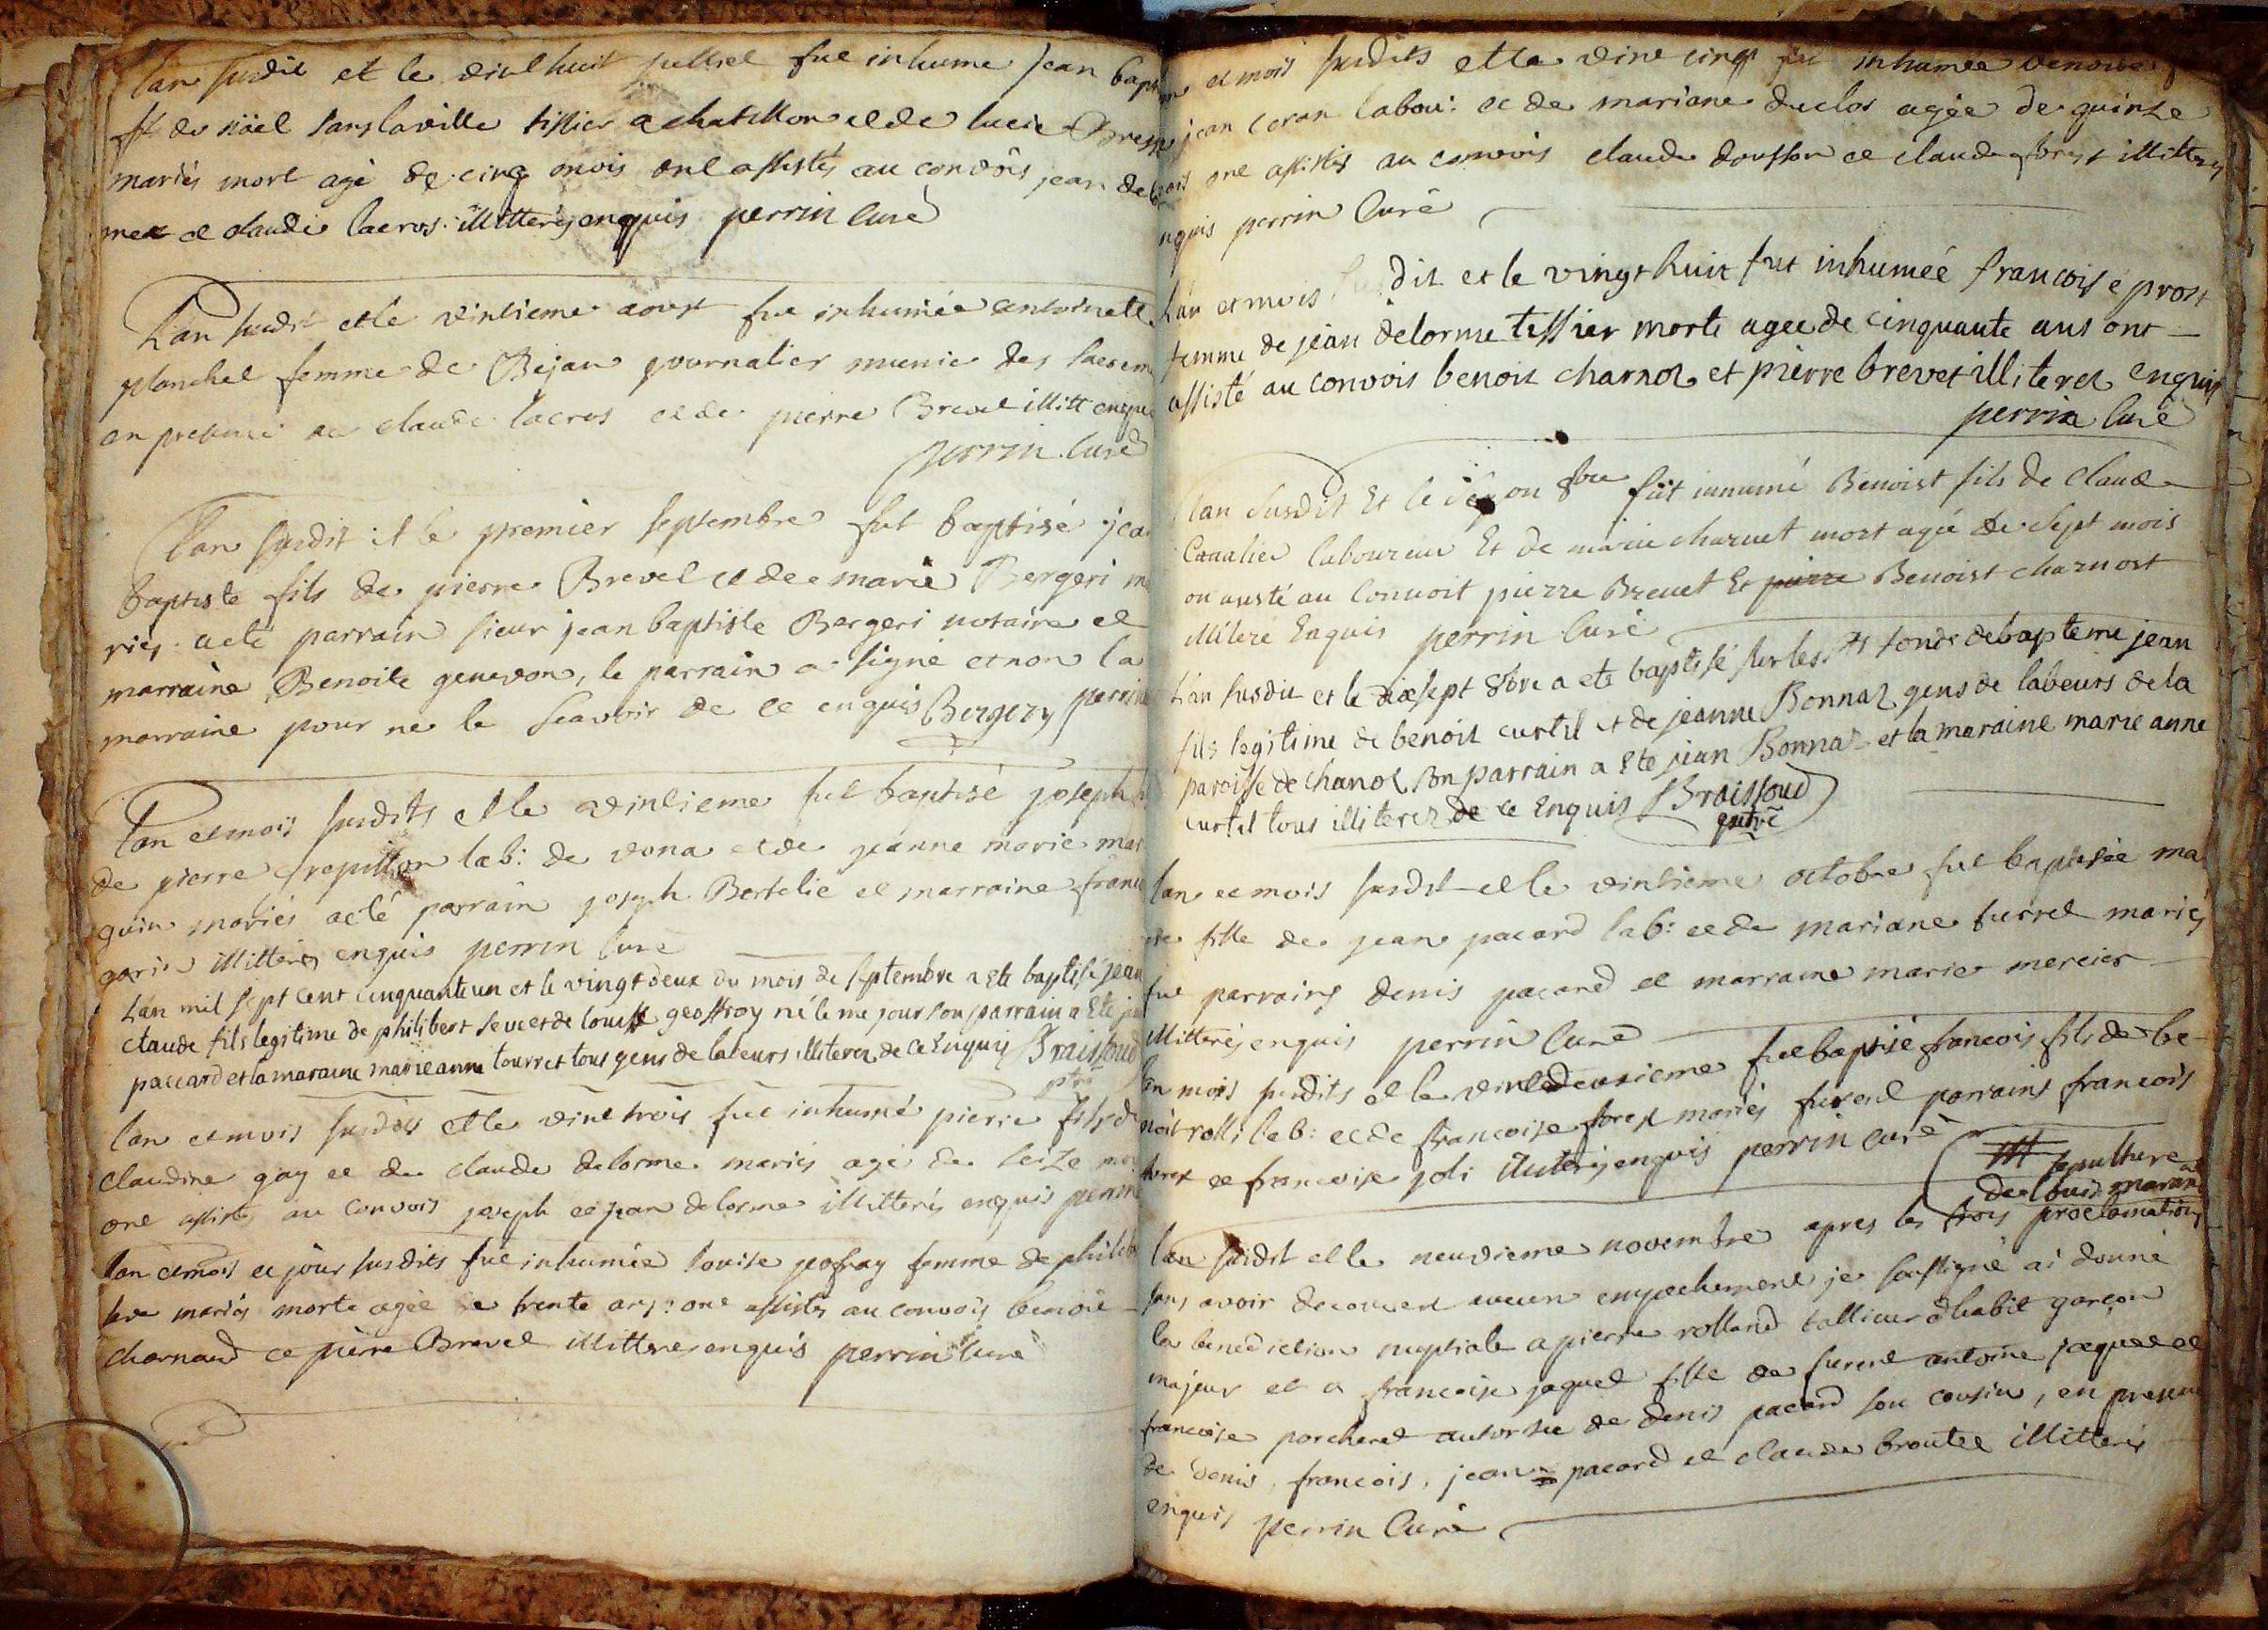 L'an susdit et le vint huit juillet fut inhumé jean bap
fil de noël sanslaville tissier a chatillon et de lucie Bresse
mariés mort agé de cinq mois ont assistés au convois jean de
et claude lacros illitterés enquis perrin curé
L'an susdit et le vintieme aoust fut inhumée antoinette
planchet femme de Bejan journalier munie des sacrem
en presence de claude lacros et de pierre Brevet illitt enquis
perrin curé
L'an susdit et le premier septembre fut baptisé jea
baptiste fils de pierre Brevet et de marie Bergeri ma
riés a eté parrain sieur jean baptiste Bergeri notaire et
marraine Benoite genevon, le parrain a signé et non la
marraine pour ne le scavoir de ce enquis Bergery perrin
L'an et mois susdits et le vintieme fut baptisé joseph
de pierre frepillon lab: de vona et de jeanne marie mar
guin mariés a eté parrain joseph Bertelie et marraine franc
illitterés enquis perrin curé
L'an mil sept cent cinquante un et le vingt deux du mois de septembre a ete baptisé jean
claude fils legitime de philibert seve et de louise geoffroy né le me jour son parrain a Ete
paccard et la maraine marie anne tourret tous gens de labeurs illiterez de ce Enquis Braissoud
ptre
L'an et mois susdits et le vint trois fut inhumé pierre fils de
claudine gay et de claude delorme mariés agé de seize
ont assistés au convois joseph et jean delorme illitterés enquis perrin
L'an et mois et jour susdits fut inhumée louise jofray femme de philib
mariés morte agée de trente ans: ont assistés au convois benoit
charnard et pierre Brevet illitterés enquis perrin curé
et mois susdits et le vint cinq fut inhumée
jean coran labou: et de mariane duclos agée de quinze
mois ont assistés au convois claude doufson et claude forest illitterés
enquis perrin curé
L'an et mois susdit et le vingt huit fut inhumeé francoise prost
femme de jean delorme tissier morte agee de cinquante ans ont
assisté au convois benoit charnoz et pierre brevet illiterez enquis
perrin curé
L'an susdit Et le 8bre fut inhumé Benoist fils de Claude
laboureur Et de marie charuet mort agé de sept mois
on asisté au convoit pierre Brevet Et pierre Benoist charnost
illiteré Enquis perrin curé
L'an susdit et le dixsept 8bre a ete baptisé sur les sts fonds de bapteme jean
fils legitime de benoit curtil et de jeanne Bonnaz gens de labeurs de la
paroisse de chanoz son parrain a Ete jean Bonnaz et la maraine marie anne
curtil tous illiterez de ce Enquis Braissoud
ptre
L'an et mois susdit et le vintieme octobre fut baptisée ma
rie fille de jean pacard lab: et de mariane furret mariés
fut parrains denis pacard et marraine marie mercier
illitterés enquis perrin curé
L'an mois susdits et le vintdeuxieme fut baptisé francois fils de be
noit rolli lab: et de francoise forest mariés furent parrains francois
forest et francoise joli illiterés enquis perrin curé
sepulture
de louis maran
L'an susdit et le neuvieme novembre apres les trois proclamations
sans avoir decouvert aucun empechement je soussigné ai donné
la benediction nuptiale a pierre rolland tallieur d'habit garçon
majeur et a francoise jaquet fille de furent antoine jaquet et
francoise porcheret autorisée de denis pacard son cousin, en presence
de denis, francois, jean pacard et claude broutet illitterés
enquis perrin curé